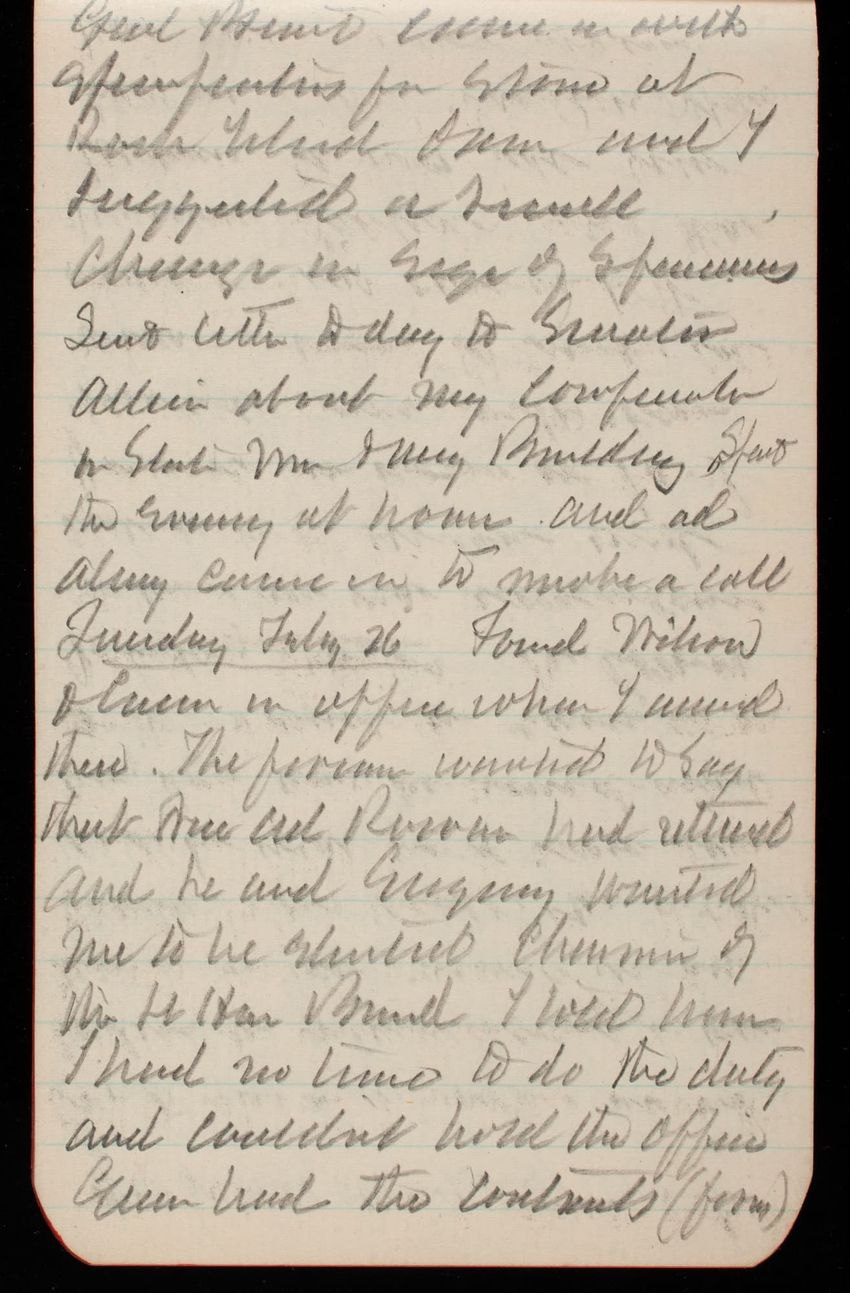 Genl Brent came in with
Specifications for Stone at
Rock Island Dam and I
suggested a small
change in Size of Specimens
Sent letter to day to Senator
Allison about my
on State War & Navy Building Spent
the Evening at home and
along came in to make a call
Tuesday July 26 Found Wilson
& in office when I arrived
there. The former wanted to say
that had retired
and he and Gregory wanted
me to be elected Chairman of
the Lt House Board I told him
I had no time to do the duty
and couldnt hold the office
had the contracts (form)